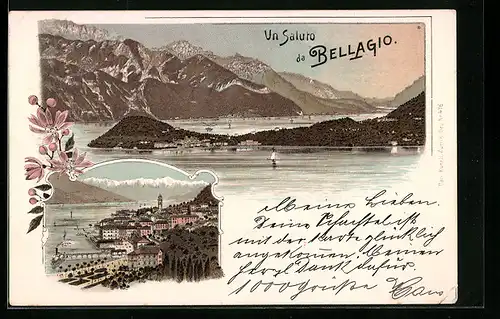 Un Saluto
da BELLAGIO.
Meine Lieben.
Deine Schachtel ist
mit der Karte glücklich
angekommen. Meinen
herzl Dank dafür.
1000 Grüße Hans